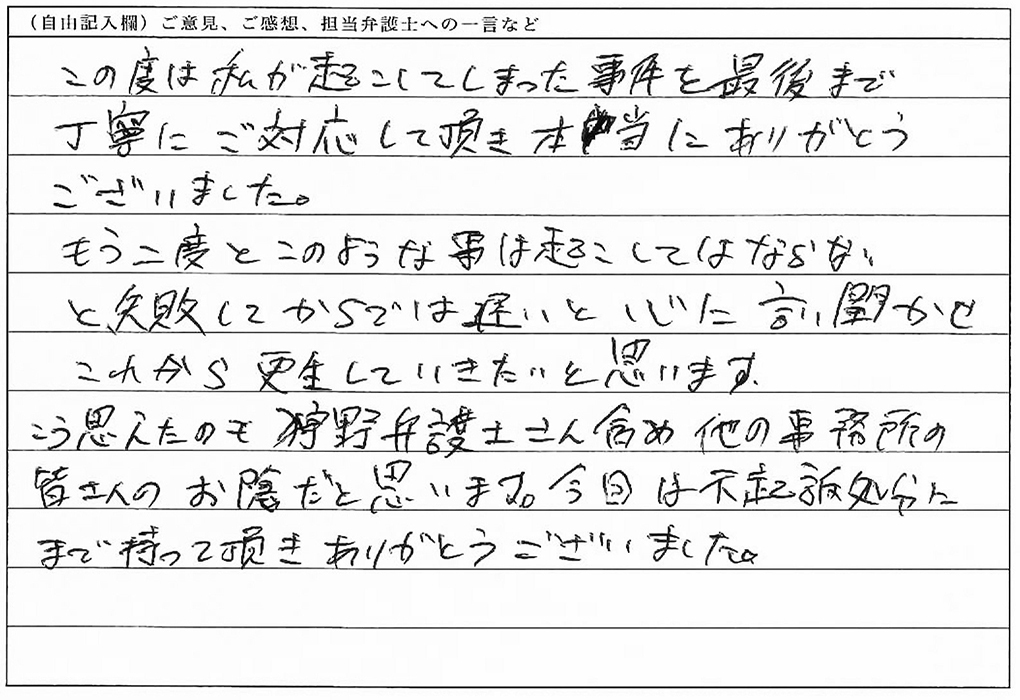 （自由記入欄）ご意見、ご感想、担当弁護士への一言など
この度は私が起こしてしまった事件を最後まで
丁寧にご対応して頂き本当にありがとう
ございました。
もう二度とこのような事は起こしてはならない
と失敗してからでは遅いと心に言い聞かせ
これから更生していきたいと思います。
こう思えたのも狩野弁護士さん含め他の事務所の
皆さんのお陰だと思います。今回は不起訴処分に
まで持って頂きありがとうございました。